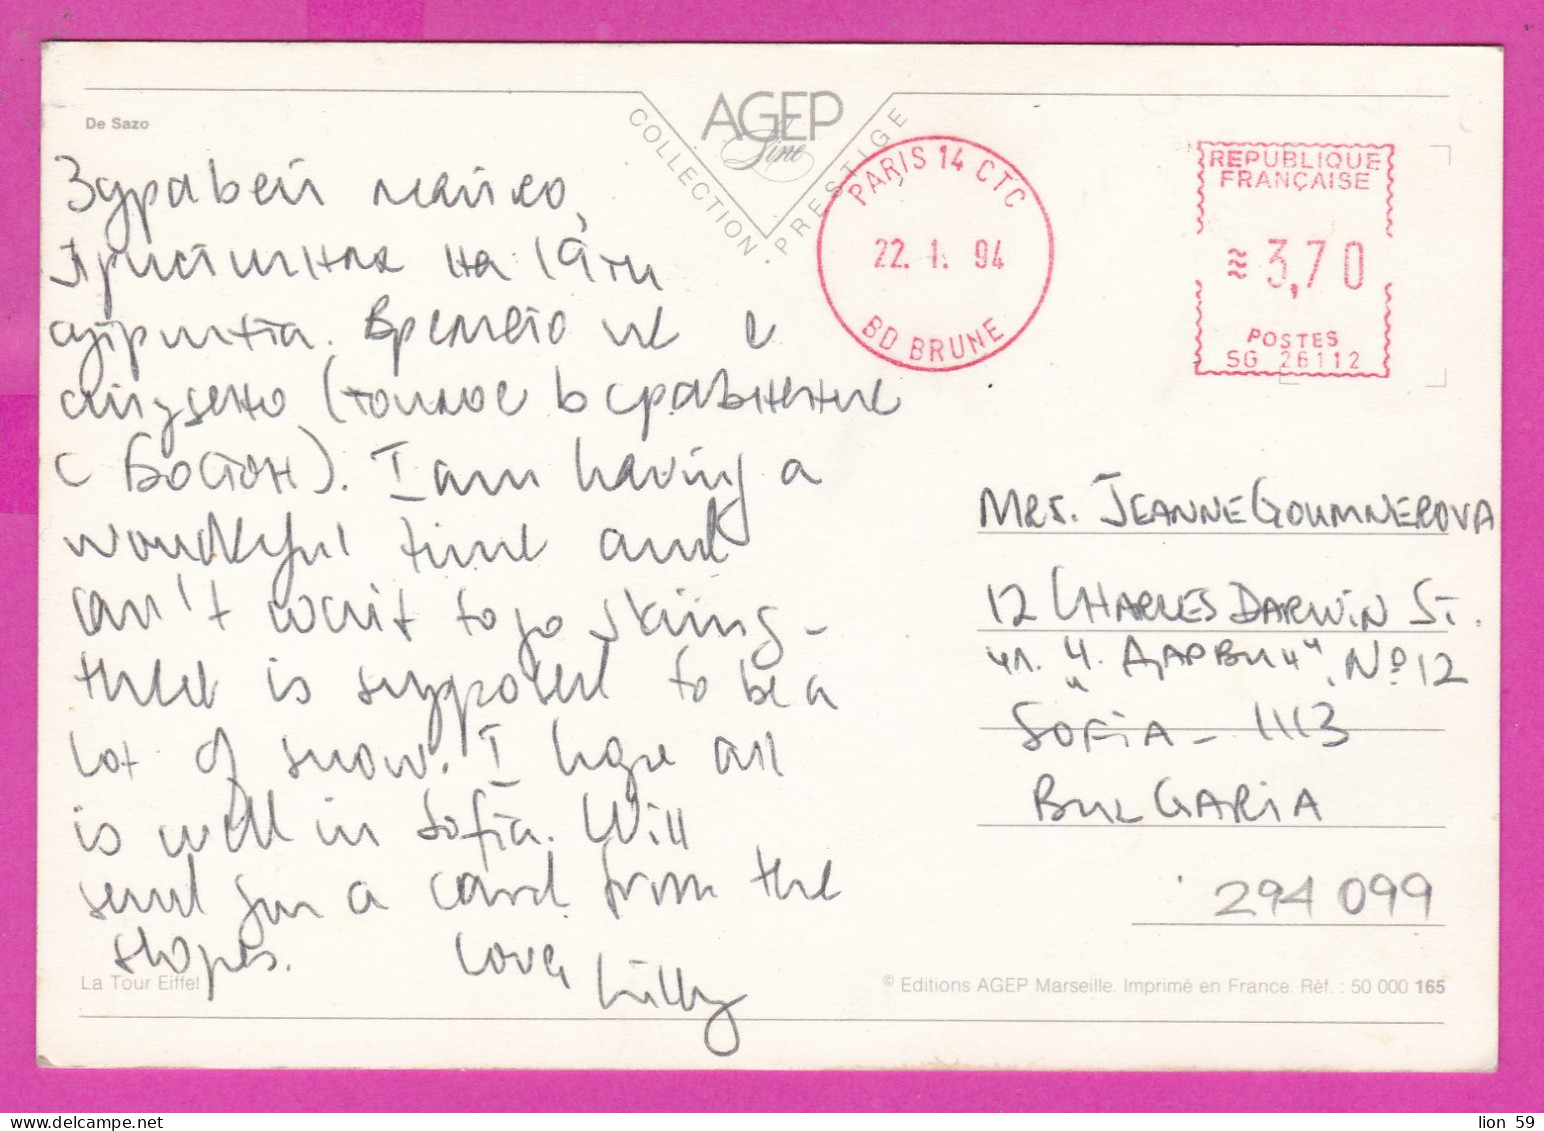 De Sazo
AGEP
Line
COLLECTION PRESTIGE
PARIS 14 CTC
22. 1. 94
BD BRUNE
REPUBLIQUE
FRANÇAISE
3,70
POSTES
SG 26112
Здравей майко,
Пристигнах на 19ти
сутринта. Времето не е
студено (топло е в сравнение
с Бостон). I am having a
wonderful time and
can't wait to go skiing -
there is supposed to be a
lot of snow. I hope all
is well in Sofia. Will
send you a card from the
slopes. Love, Lilly
MRS. JEANNE GOUMNEROVA
12 CHARLES DARWIN ST.
ул. "Ч. ДАРВИН" No 12
SOFIA - 1113
BULGARIA
294 099
La Tour Eiffel
© Editions AGEP Marseille. Imprimé en France. Réf. : 50 000 165
lion 59